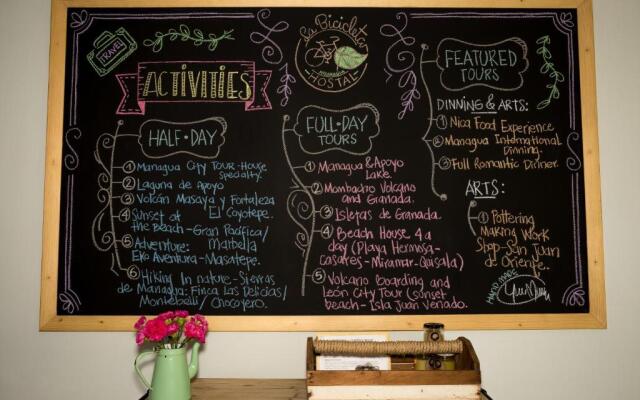 TRAVEL
ACTIVITIES
La Bicicleta
HOSTAL
FEATURED
TOURS
HALF·DAY
① Managua City Tour-House
specialty.
② Laguna de Apoyo
③ Volcán Masaya y Fortaleza
El Coyotepe.
④ Sunset at
the Beach-Gran Pacifica/
⑤ Adventure: Marbella
Eko Aventura-Masatepe.
⑥ Hiking In nature-Sierras
de Managua: Finca Las Delicias/
Montebelli/ Chocoyero.
FULL·DAY
TOURS
① Managua & Apoyo
Lake.
② Mombacho Volcano
and Granada.
③ Isletas de Granada.
④ Beach House 4 a
day (Playa Hermosa-
Casares-Miramar-Quisala)
⑤ Volcano Boarding and
León City Tour (sunset
beach-Isla Juan Venado.
DINNING & ARTS:
① Nica Food Experience
② Managua International
Dinning.
③ Full Romantic Dinner.
ARTS:
① Pottering
Making Work
Shop-San Juan
de Oriente.
HAND MADE